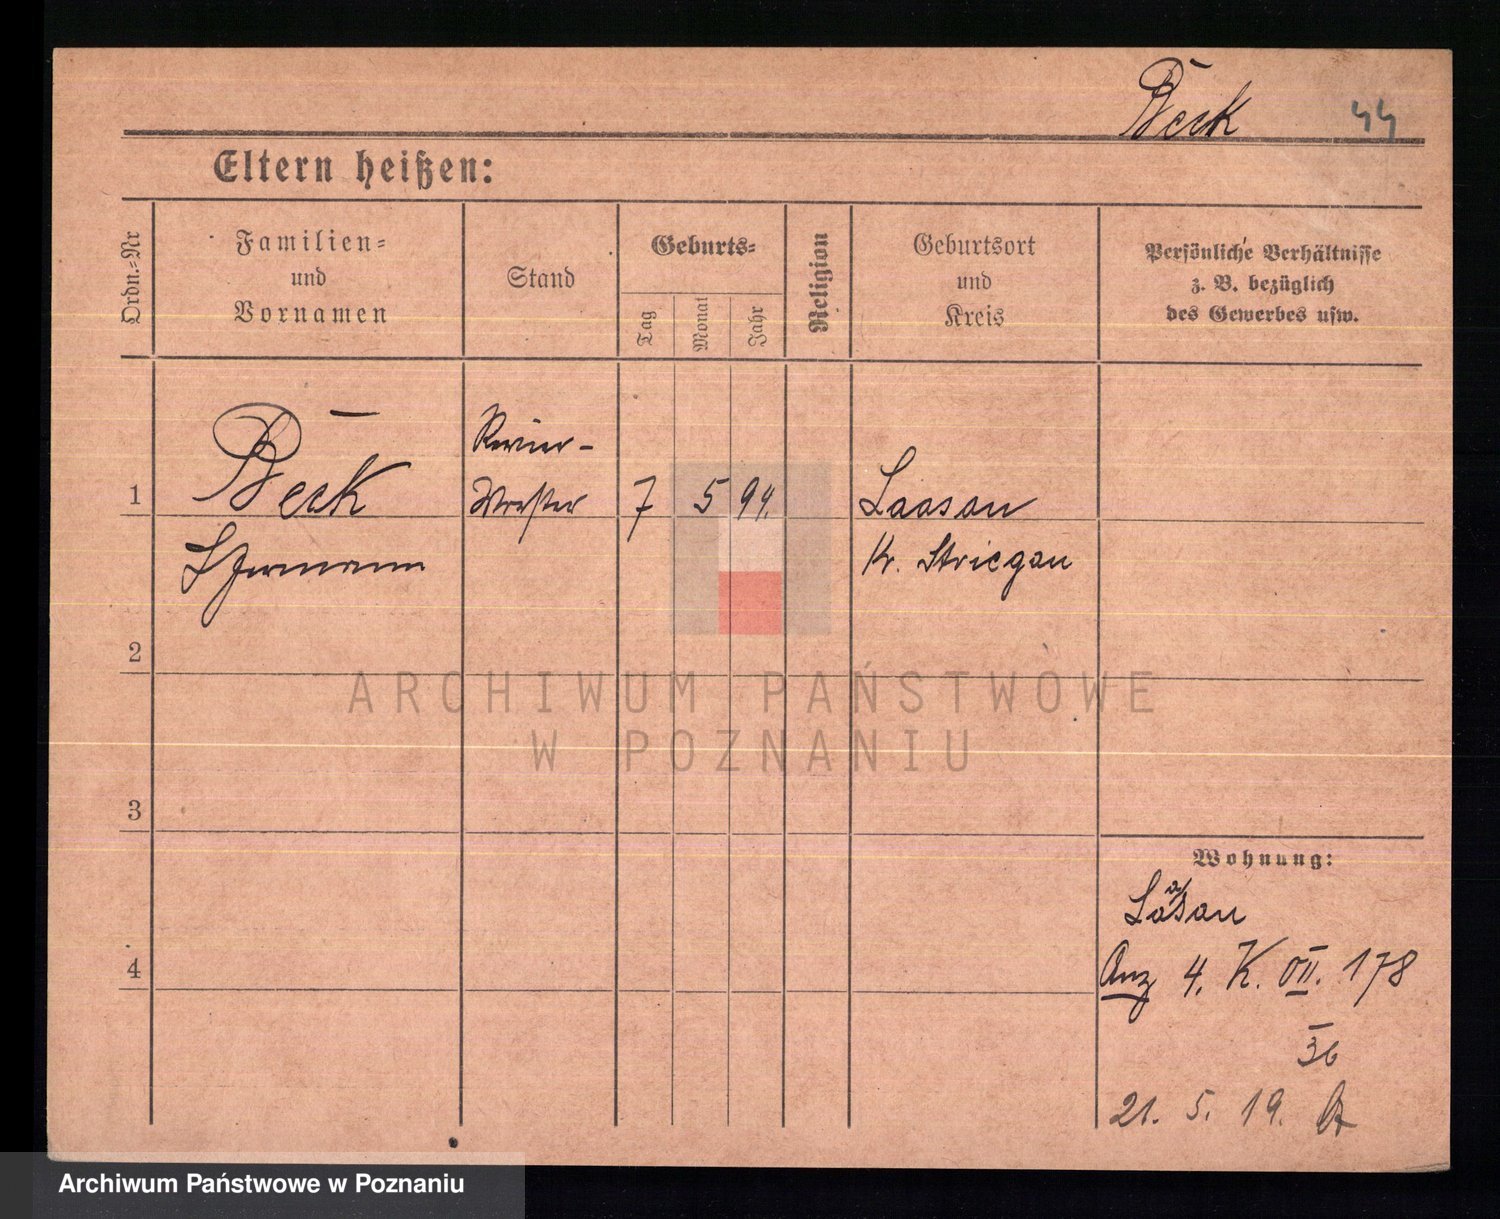 Beck 44
Eltern heißen:
Ordn.-Nr
Familien-
und
Vornamen
Stand
Geburts-
Tag
Monat
Jahr
Religion
Geburtsort
und
Kreis
Persönliche Verhältnisse
z. B. bezüglich
des Gewerbes usw.
Revier-
1 Beck Förster 7 5 94. Laasan
Hermann Kr. Striegau
2
ARCHIWUM PAŃSTWOWE
W POZNANIU
3
Wohnung:
Laasan
4 Anz 4. K. VII. 178
36
21. 5. 19.
Archiwum Państwowe w Poznaniu